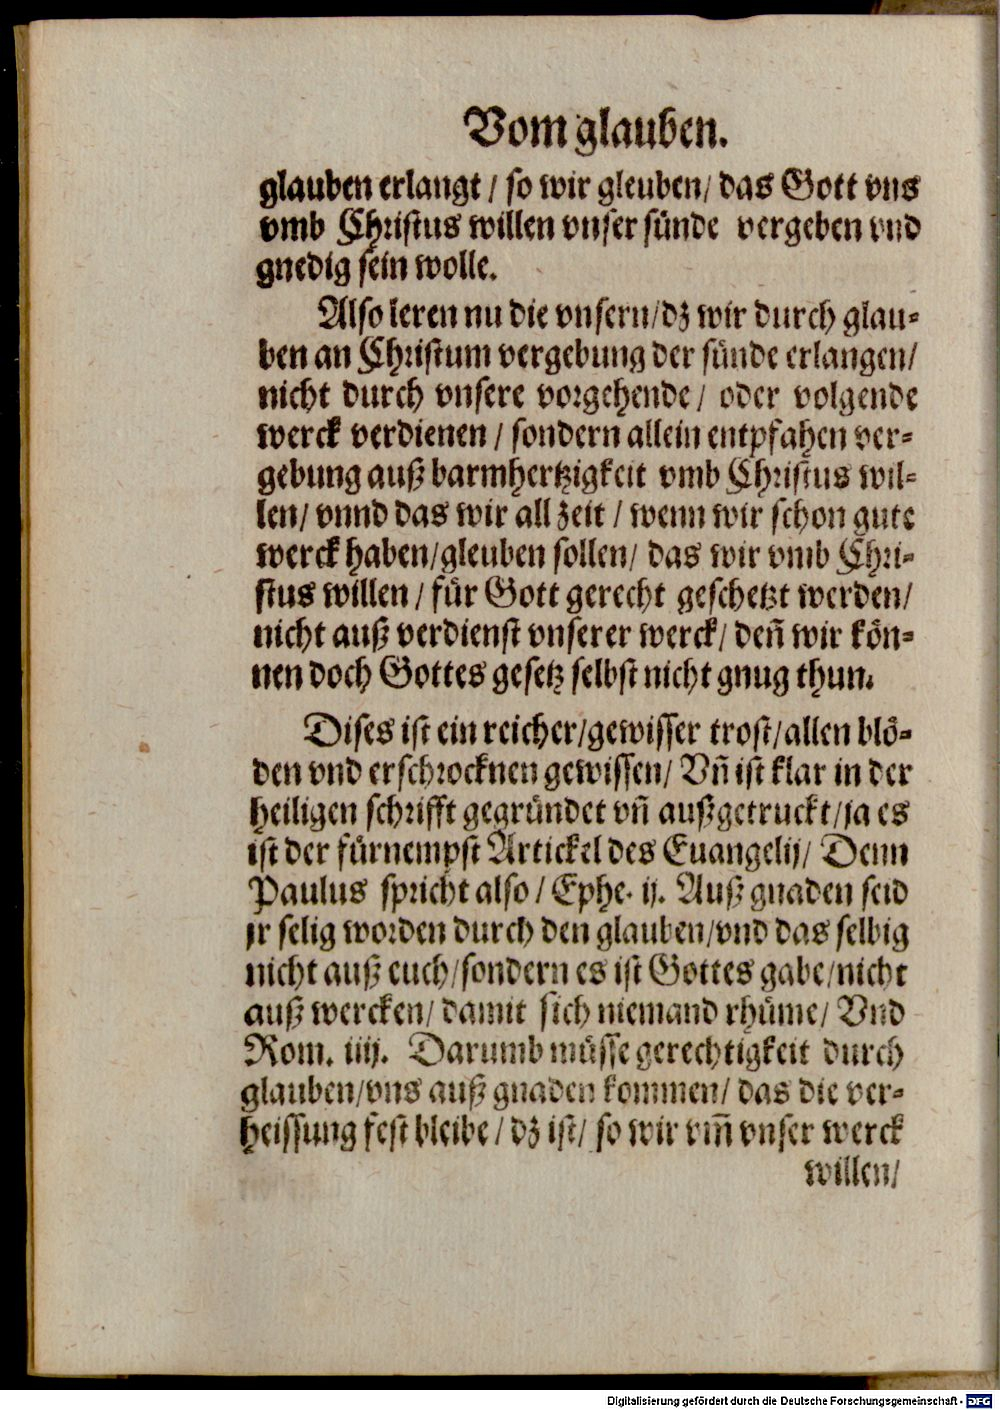 Vom glauben.
glauben erlangt / so wir gleuben / das Gott vns
vmb Christus willen vnser sünde vergeben vnd
gnedig sein wolle.
Also leren nu die vnsern / dz wir durch glau-
ben an Christum vergebung der sünde erlangen /
nicht durch vnsere vorgehende / oder volgende
werck verdienen / sondern allein entpfahen ver-
gebung auß barmhertzigkeit vmb Christus wil-
len / vnnd das wir all zeit / wenn wir schon gute
werck haben / gleuben sollen / das wir vmb Chri-
stus willen / für Gott gerecht geschetzt werden /
nicht auß verdienst vnserer werck / deñ wir kön-
nen doch Gottes gesetz selbst nicht gnug thun.
Dises ist ein reicher / gewisser trost / allen blö-
den vnd erschrocknen gewissen / Vñ ist klar in der
heiligen schrifft gegründet vñ außgetruckt / ja es
ist der fürnempst Artickel des Euangelij / Denn
Paulus spricht also / Ephe. ij. Auß gnaden seid
jr selig worden durch den glauben / vnd das selbig
nicht auß euch / sondern es ist Gottes gabe / nicht
auß wercken / damit sich niemand rhüme / Vnd
Rom. iiij. Darumb müsse gerechtigkeit durch
glauben / vns auß gnaden kommen / das die ver-
heissung fest bleibe / dz ist / so wir vm̃ vnser werck
willen /
Digitalisierung gefördert durch die Deutsche Forschungsgemeinschaft - DFG